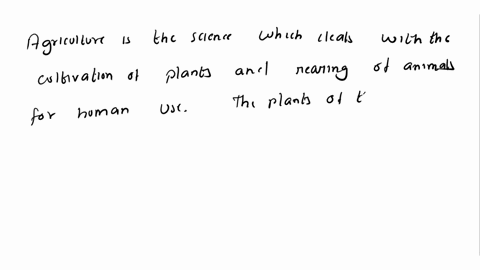 Agriculture is the science which deals with the
cultivation of plants and rearing of animals
for human use. The plants of t